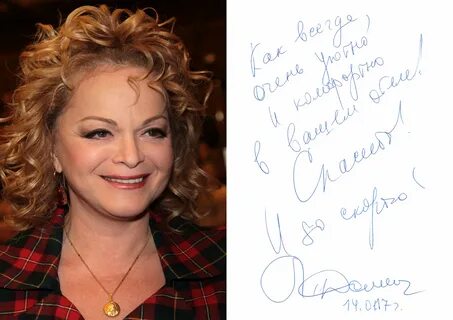 Как всегда,
очень уютно
и комфортно
в вашем отеле!
Спасибо!
И до скорого!